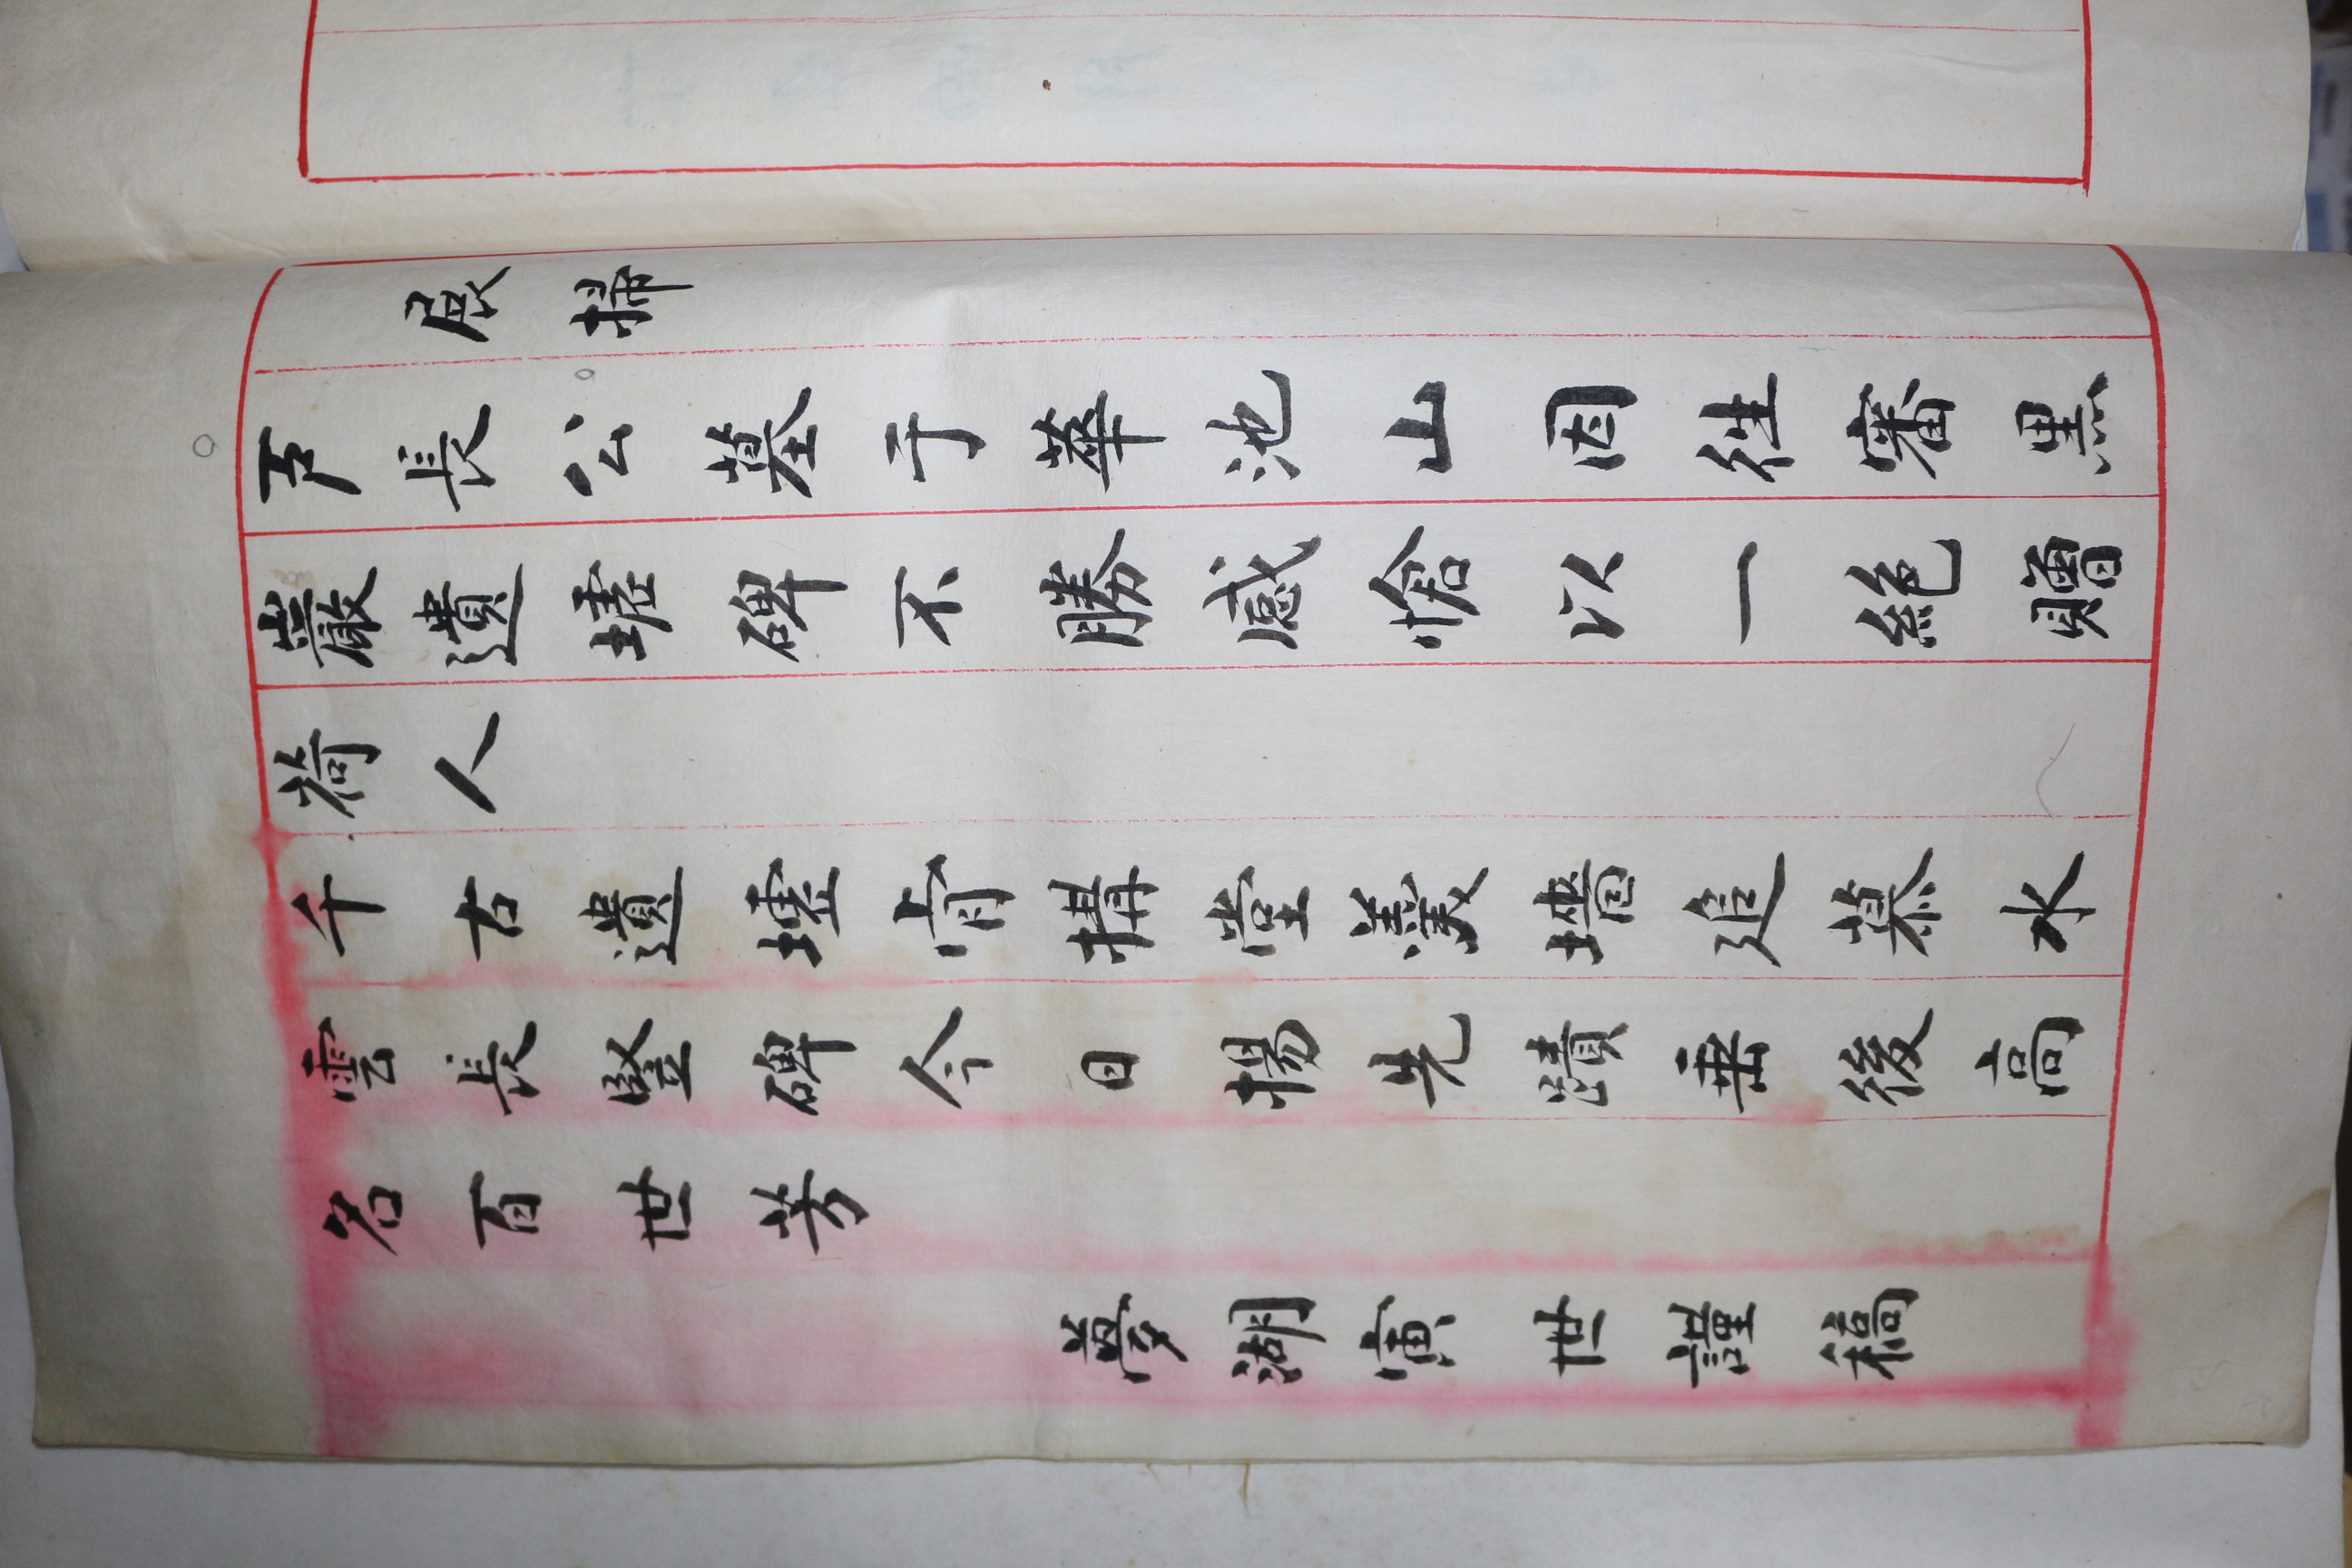 展掃
戶長公墓于華池山因往審黑
巖遺墟碑不勝感愴以一絕贈
荷人
千古遺墟肯構堂羹墻追慕水
雲長豎碑今日揚先蹟垂後高
名百世芳
夢湖寅世謹稿